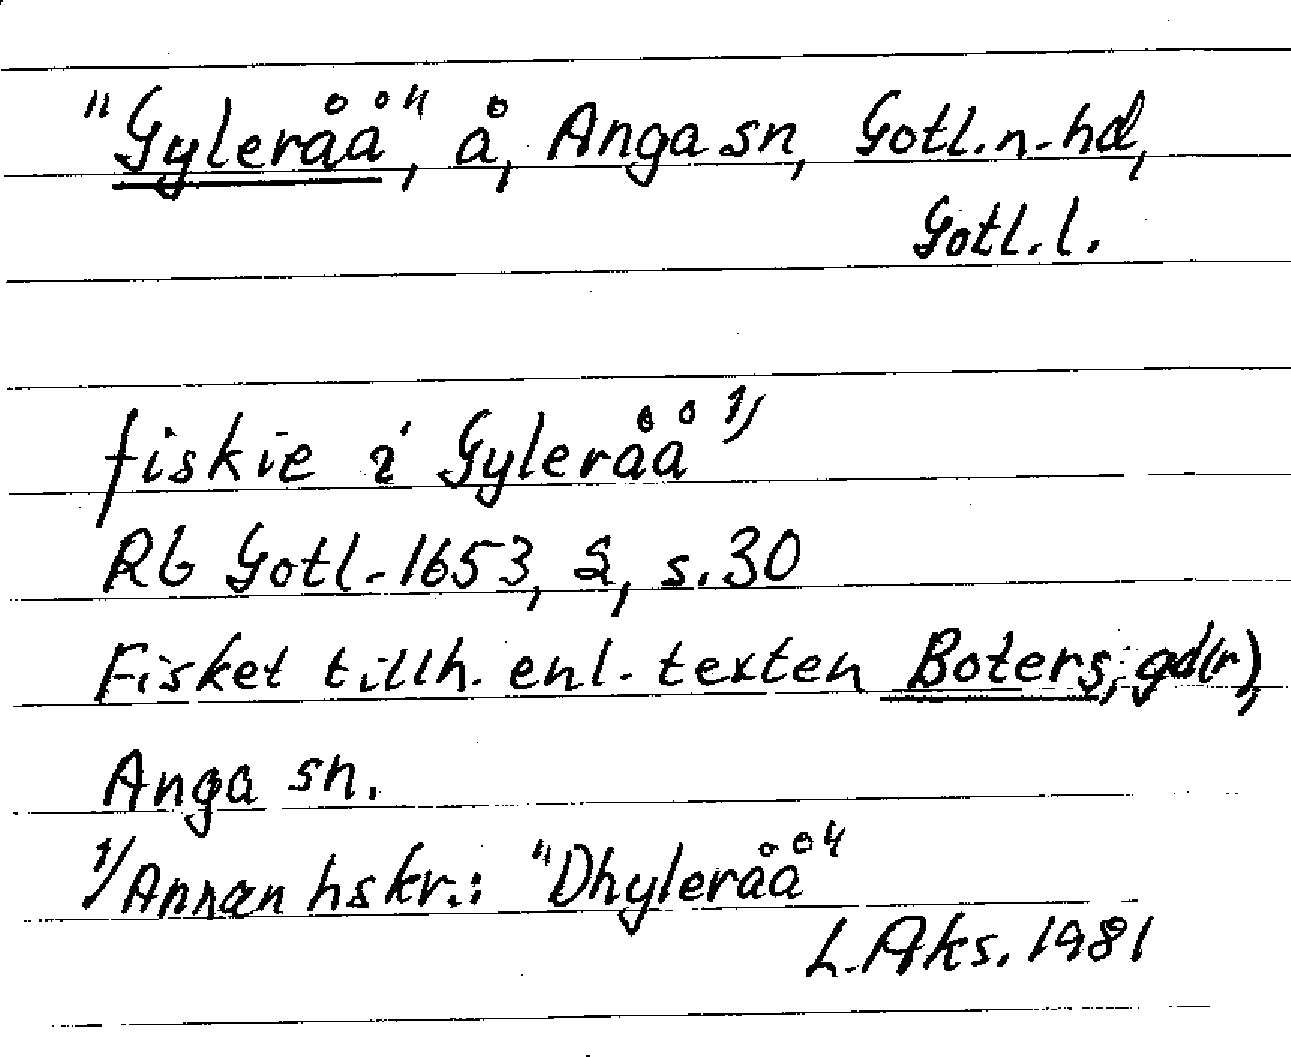 "Gyleråå", å, Anga sn, Gotl. n. hd,
Gotl. l.
fiskie i Gyleråå 1)
Rb Gotl. 1653, 2, s. 30
Fisket tillh. enl. texten Boters, gd(r),
Anga sn.
1) Annan hskr.: "Dhyleråå"
L. Aks. 1981